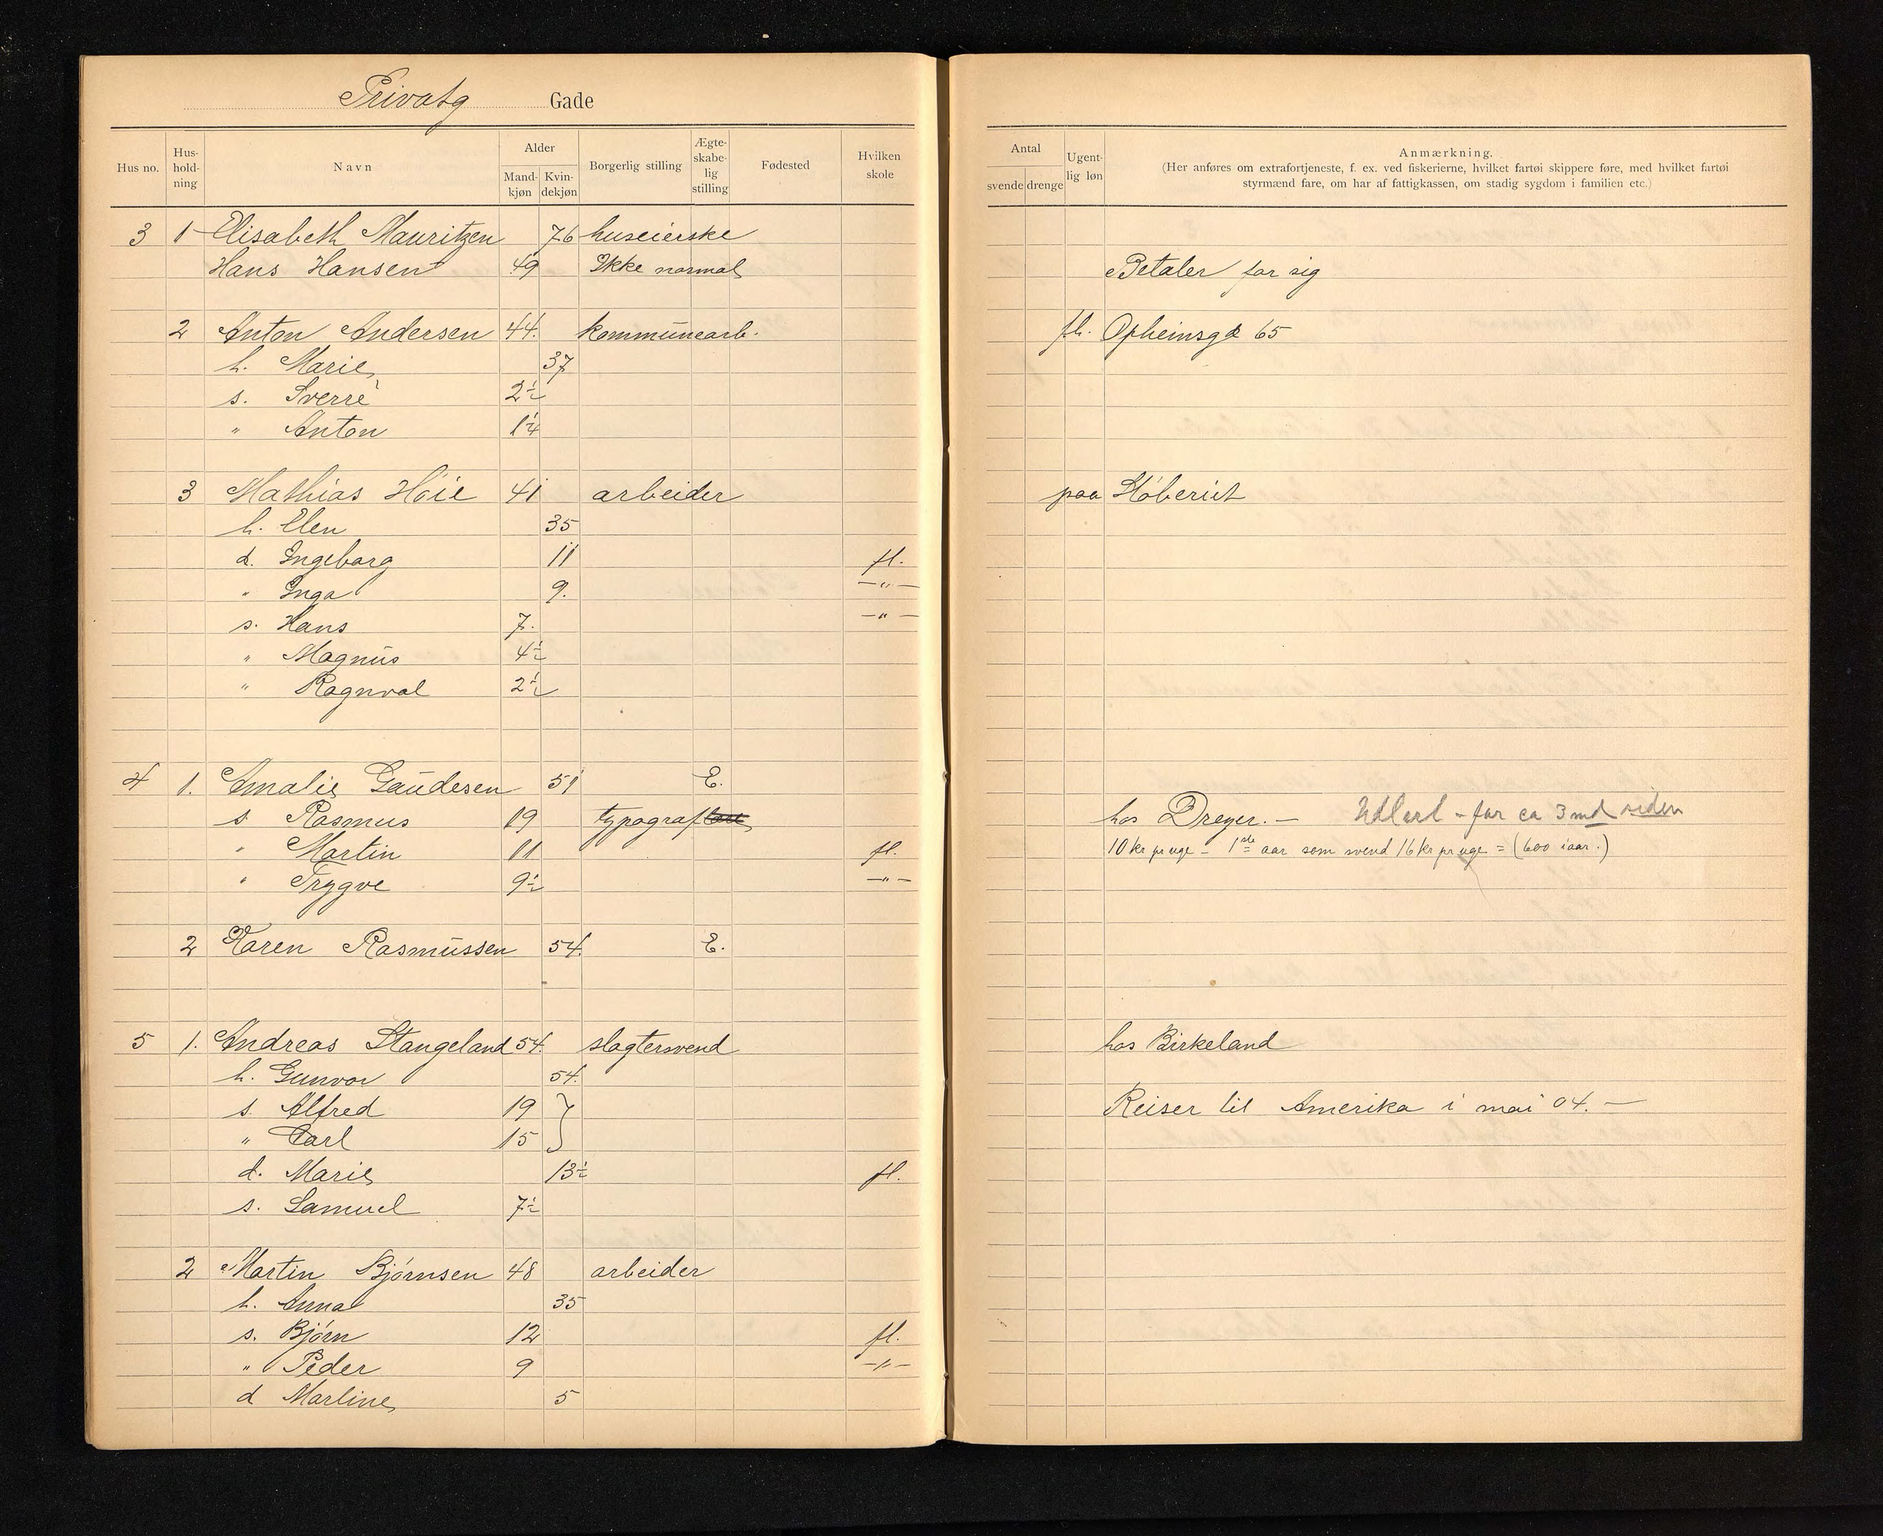 Privatg Gade
Hus no. Hus-hold-ning Navn Alder Mand-kjøn Kvin-dekjøn Borgerlig stilling Ægte-skabe-lig stilling Fødested Hvilken skole
Antal svende drenge Ugent-lig løn Anmærkning.
(Her anføres om extrafortjeneste, f. ex. ved fiskerierne, hvilket fartøi skippere føre, med hvilket fartøi
styrmænd fare, om har af fattigkassen, om stadig sygdom i familien etc.)
3 1 Elisabeth Mauritzen 76 huseierske
Hans Hansen 49 Ikke normal Betaler for sig
2 Anton Andersen 44. kommunearb. fh. Opheimsgd 65
h. Marie 37
s. Sverre 2½
" Anton 1¼
3 Mathias Høie 41 arbeider paa Støberiet
h. Elen 35
d. Ingeborg 11 fl.
" Inga 9. —"—
s. Hans 7. —"—
" Magnus 4½
" Ragnval 2½
4 1. Amalie Gaudesen 51 E.
s. Rasmus 19 typograf hos Dreyer. — Udlært - for ca 3 md siden
" Martin 11 fl. 10 kr pr uge - 1ste aar som svend 16 kr pr uge = (600 i aar.)
" Trygve 9½ —"—
2 Karen Rasmussen 54. E.
5 1. Andreas Stangeland 54. slagtersvend hos Birkeland
h. Gunvor 54.
s. Alfred 19 } Reiser til Amerika i mai 04. —
" Carl 15
d. Marie 13½ fl.
s. Samuel 7½
2 Martin Bjørnsen 48 arbeider
h. Anna 35
s. Bjørn 12 fl.
" Peder 9 —"—
d Martine 5